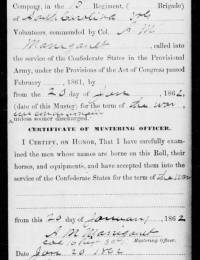 Company, in the 15 Regiment, ( Brigade)
of South Carolina Vols
Volunteers, commanded by Col. A M
Manigault, called into
the service of the Confederate States in the Provisional
Army, under the Provisions of the Act of Congress passed
February, 1861, by
from the 23 day of Jan, 1862,
(date of this Muster) for the term of the war,
unless sooner discharged.
CERTIFICATE OF MUSTERING OFFICER.
I CERTIFY, ON HONOR, That I have carefully examined
the men whose names are borne on this Roll, their
horses, and equipments, and have accepted them into the
service of the Confederate States for the term of the war
from this 23 day of January, 1862
A. M. Manigault
Mustering Officer.
Date Jan 23 1862